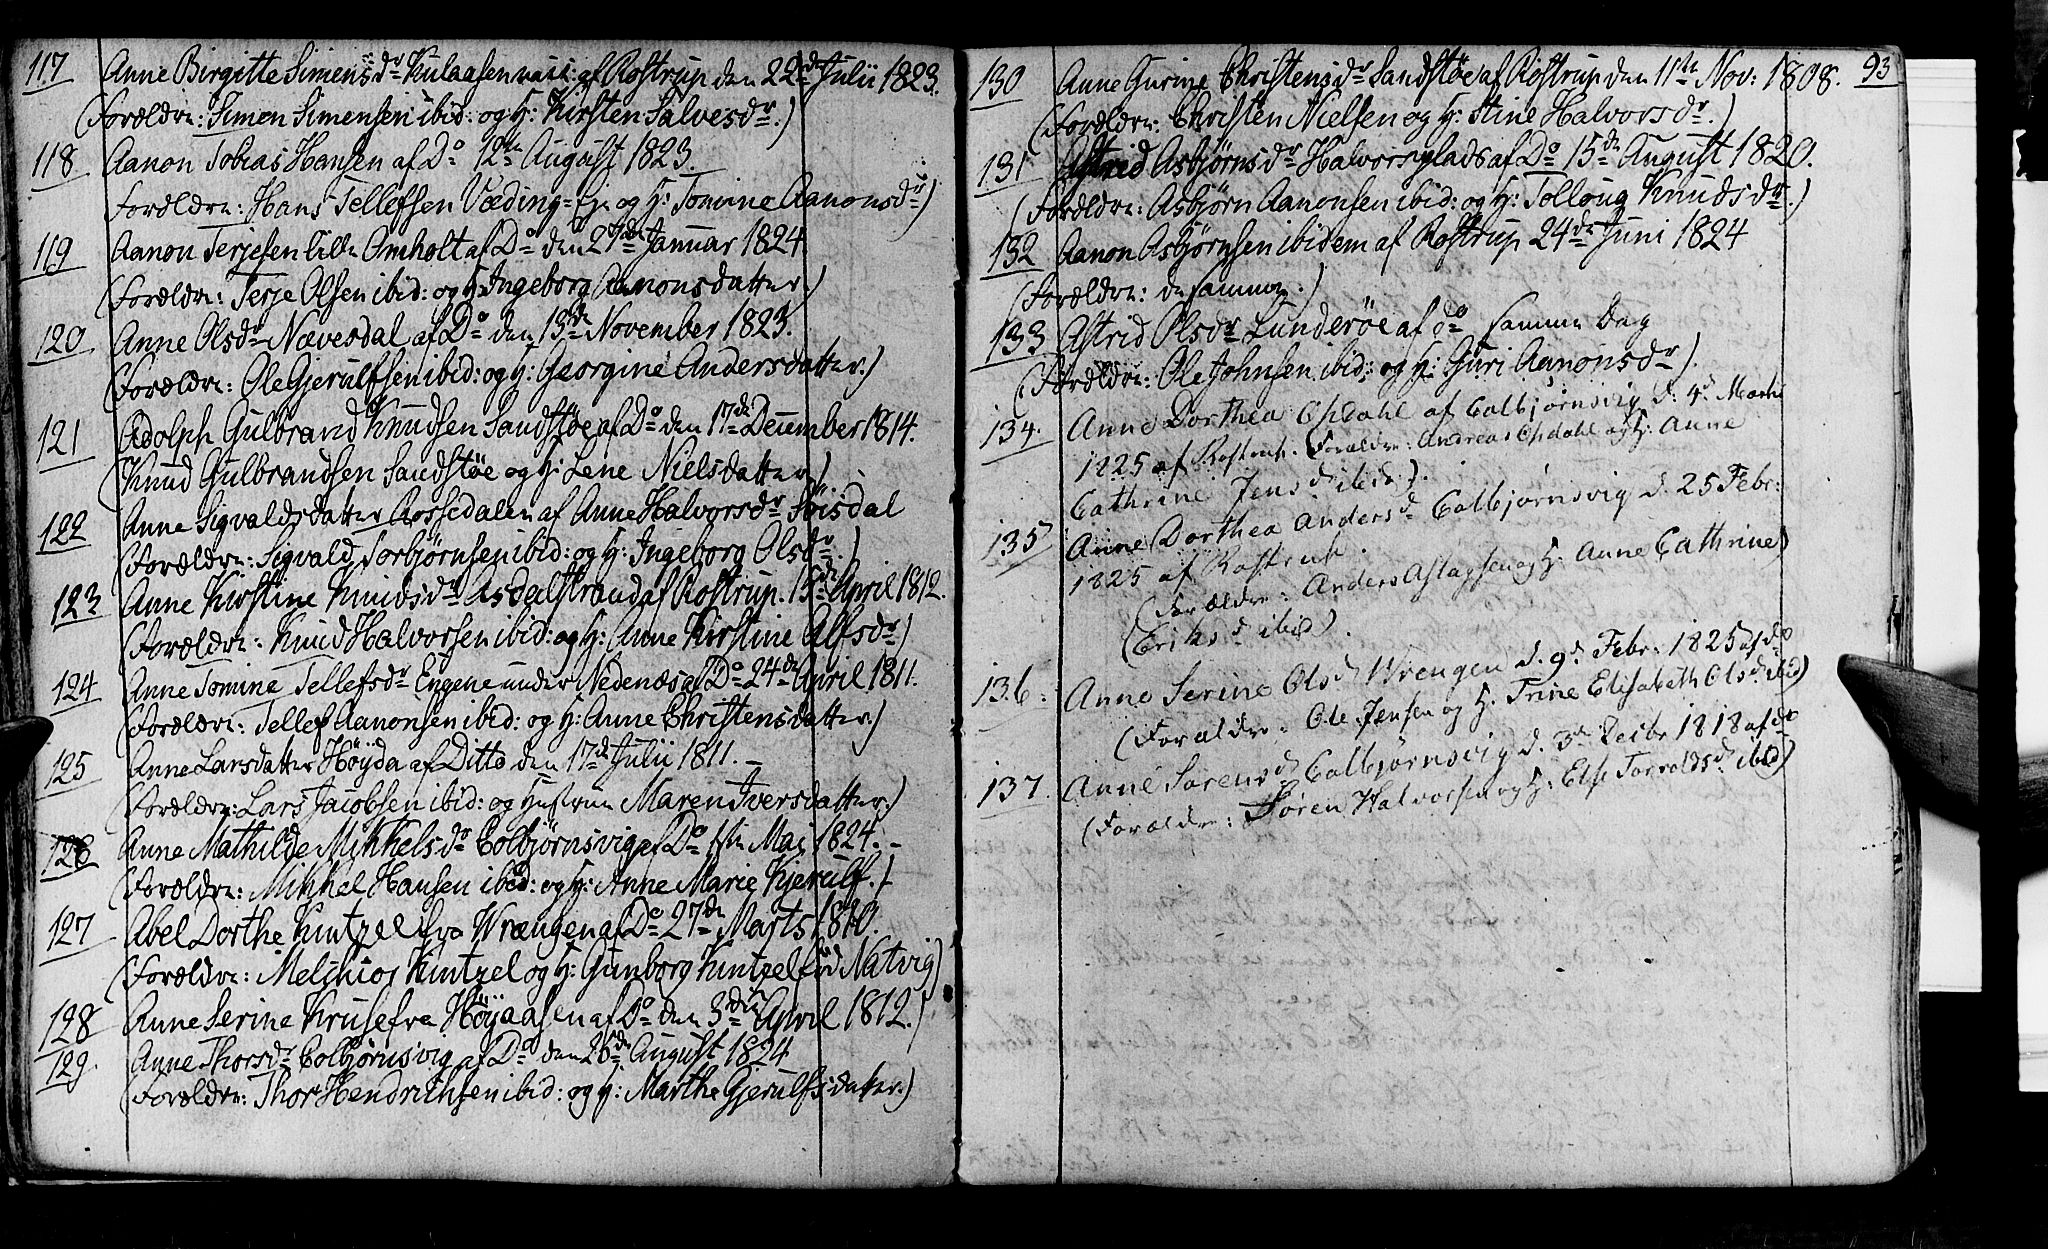 117 Anne Birgitte Simensdr Kulaasen vacc: af Rostrup den 22de Julii 1823.
(Forældre: Simen Simensen ibid: og H: Kirsten Salvesdr.)
118 Aanon Tobias Hansen af Do 12te August 1823.
Forældre: Hans Tellefsen Væding=Eje og H: Tomine Aanonsdr)
119 Aanon Terjesen lille Omholt af Do den 27de Januar 1824.
(Forældre: Terje Olsen ibid: og H: Ingeborg Aanonsdatter)
120 Anne Olsdr Nævesdal af Do den 13de November 1823.
(Forældre: Ole Gjerulfsen ibid: og H: Georgine Andersdatter.)
121 Adolph Gulbrand Knudsen Sandstøe af Do den 17de December 1814.
(Knud Gulbrandsen Sandstøe og H: Lene Nielsdatter)
122 Anne Sigvaldsdatter Aassedalen af Anne Halvorsdr
(Forældre: Sigvald Torbjørnsen ibid: og H: Ingeborg Olsdr.)
123 Anne Kirstine Knudsdr Asdalstrand af Rostrup. 15de April 1812.
(Forældre: Knud Halvorsen ibid: og H: Anne Kirstine Alfsdr)
124 Anne Tomine Tellefsdr Engene under Nedenæs af Do 24de April 1811.
(Forældre: Tellef Aanonsen ibid: og H: Anne Christensdatter.)
125 Anne Larsdatter Høyda af Ditto den 17de Julii 1811. –
(Forældre: Lars Jacobsen ibid: og Hustrue Maren Iversdatter.)
126 Anne Mathilde Mikkelsdr Colbjørnsvig af Do 1ste Maj 1824. –
(Forældre: Mikkel Hansen ibid: og H: Anne Marie Kjerulf.)
127 Abel Dorthe Kuntzel fra Wrængen af Do 27de Marts 1810.
(Forældre: Melchior Kuntzel og H: Gunborg Kuntzel fød Natvig)
128 Anne Serine Kruse fra Høyaasen af Do den 3die April 1812.)
129. Anne Thorsdr Colbjørnsvig af Do den 26de August 1824
(Forældre: Thor Hendrichsen ibid: og H: Marthe Gjerulfsdatter.)
93
130 Anne Gurine Christensdr Sandstøe af Rostrup den 11te Nov: 1808.
(Forældre: Christen Nielsen og H: Stine Halvorsdr.)
131 Astrid Asbjørnsdr Halvorsplads af Do 15de August 1820.
(Forældre: Asbjørn Aanonsen ibid: og H: Tolloug Knudsdr.)
132 Aanon Asbjørnsen ibidem af Rostrup 24de Juni 1824
(Forældre: de samme.)
133 Astrid Olsdr Lunderøe af do samme Dag
(Forældre: Ole Johnsen ibid: og H: Guri Aanonsdr).
134. Anne Dorthea Opdahl af Colbjørnsvig d: 4d Marti
1825 af Rostrup. Forældre: Andreas Opdahl og H: Anne
Cathrine Jensd ibid).
135 Anne Dorthea Andersd Colbjørnsvig d. 25 Febr:
1825 af Rostrup.
(Forældre: Anders Aslagsen og H. Anne Cathrine)
(Eriksd ibid).
136. Anne Serine Olsd Wrengen d. 9d Febr: 1825 af do
(Forældre: Ole Jensen og H. Trine Elisabeth Olsd. ibid)
137. Anne Sørensd Colbjørnsvig d. 3d Decbr 1818 af do
(Forældre: Søren Halvorsen og H: Else Torvoldsd ibid)